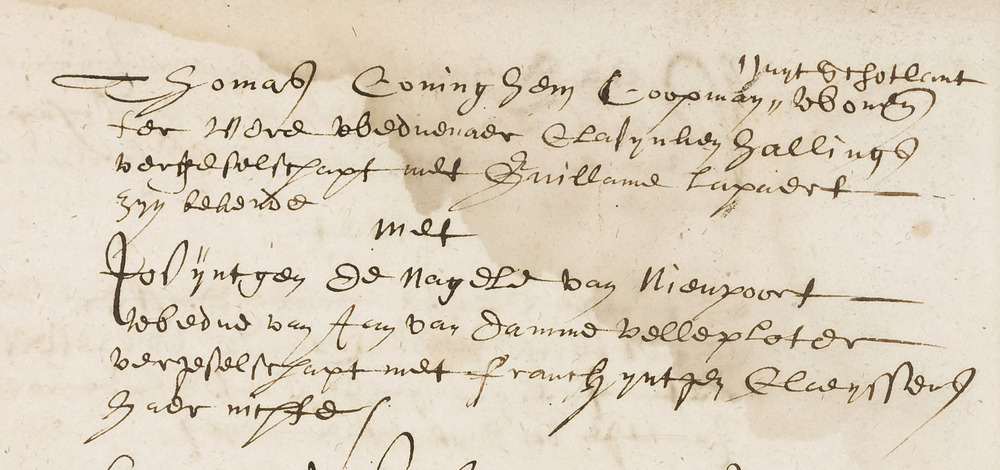 uuyt Schotlant
Thomas Coninghem Coopman, wonen
ter Vere weduenaer Claesynken hallings
vergeselschapt met Guillame Lapaert
zyn bekende
met
Josyntgen de nagele van Nieupoort
wedue van Jan van damme velleploter
vergeselschapt met franchyntgen Claeyssens
haer nichte